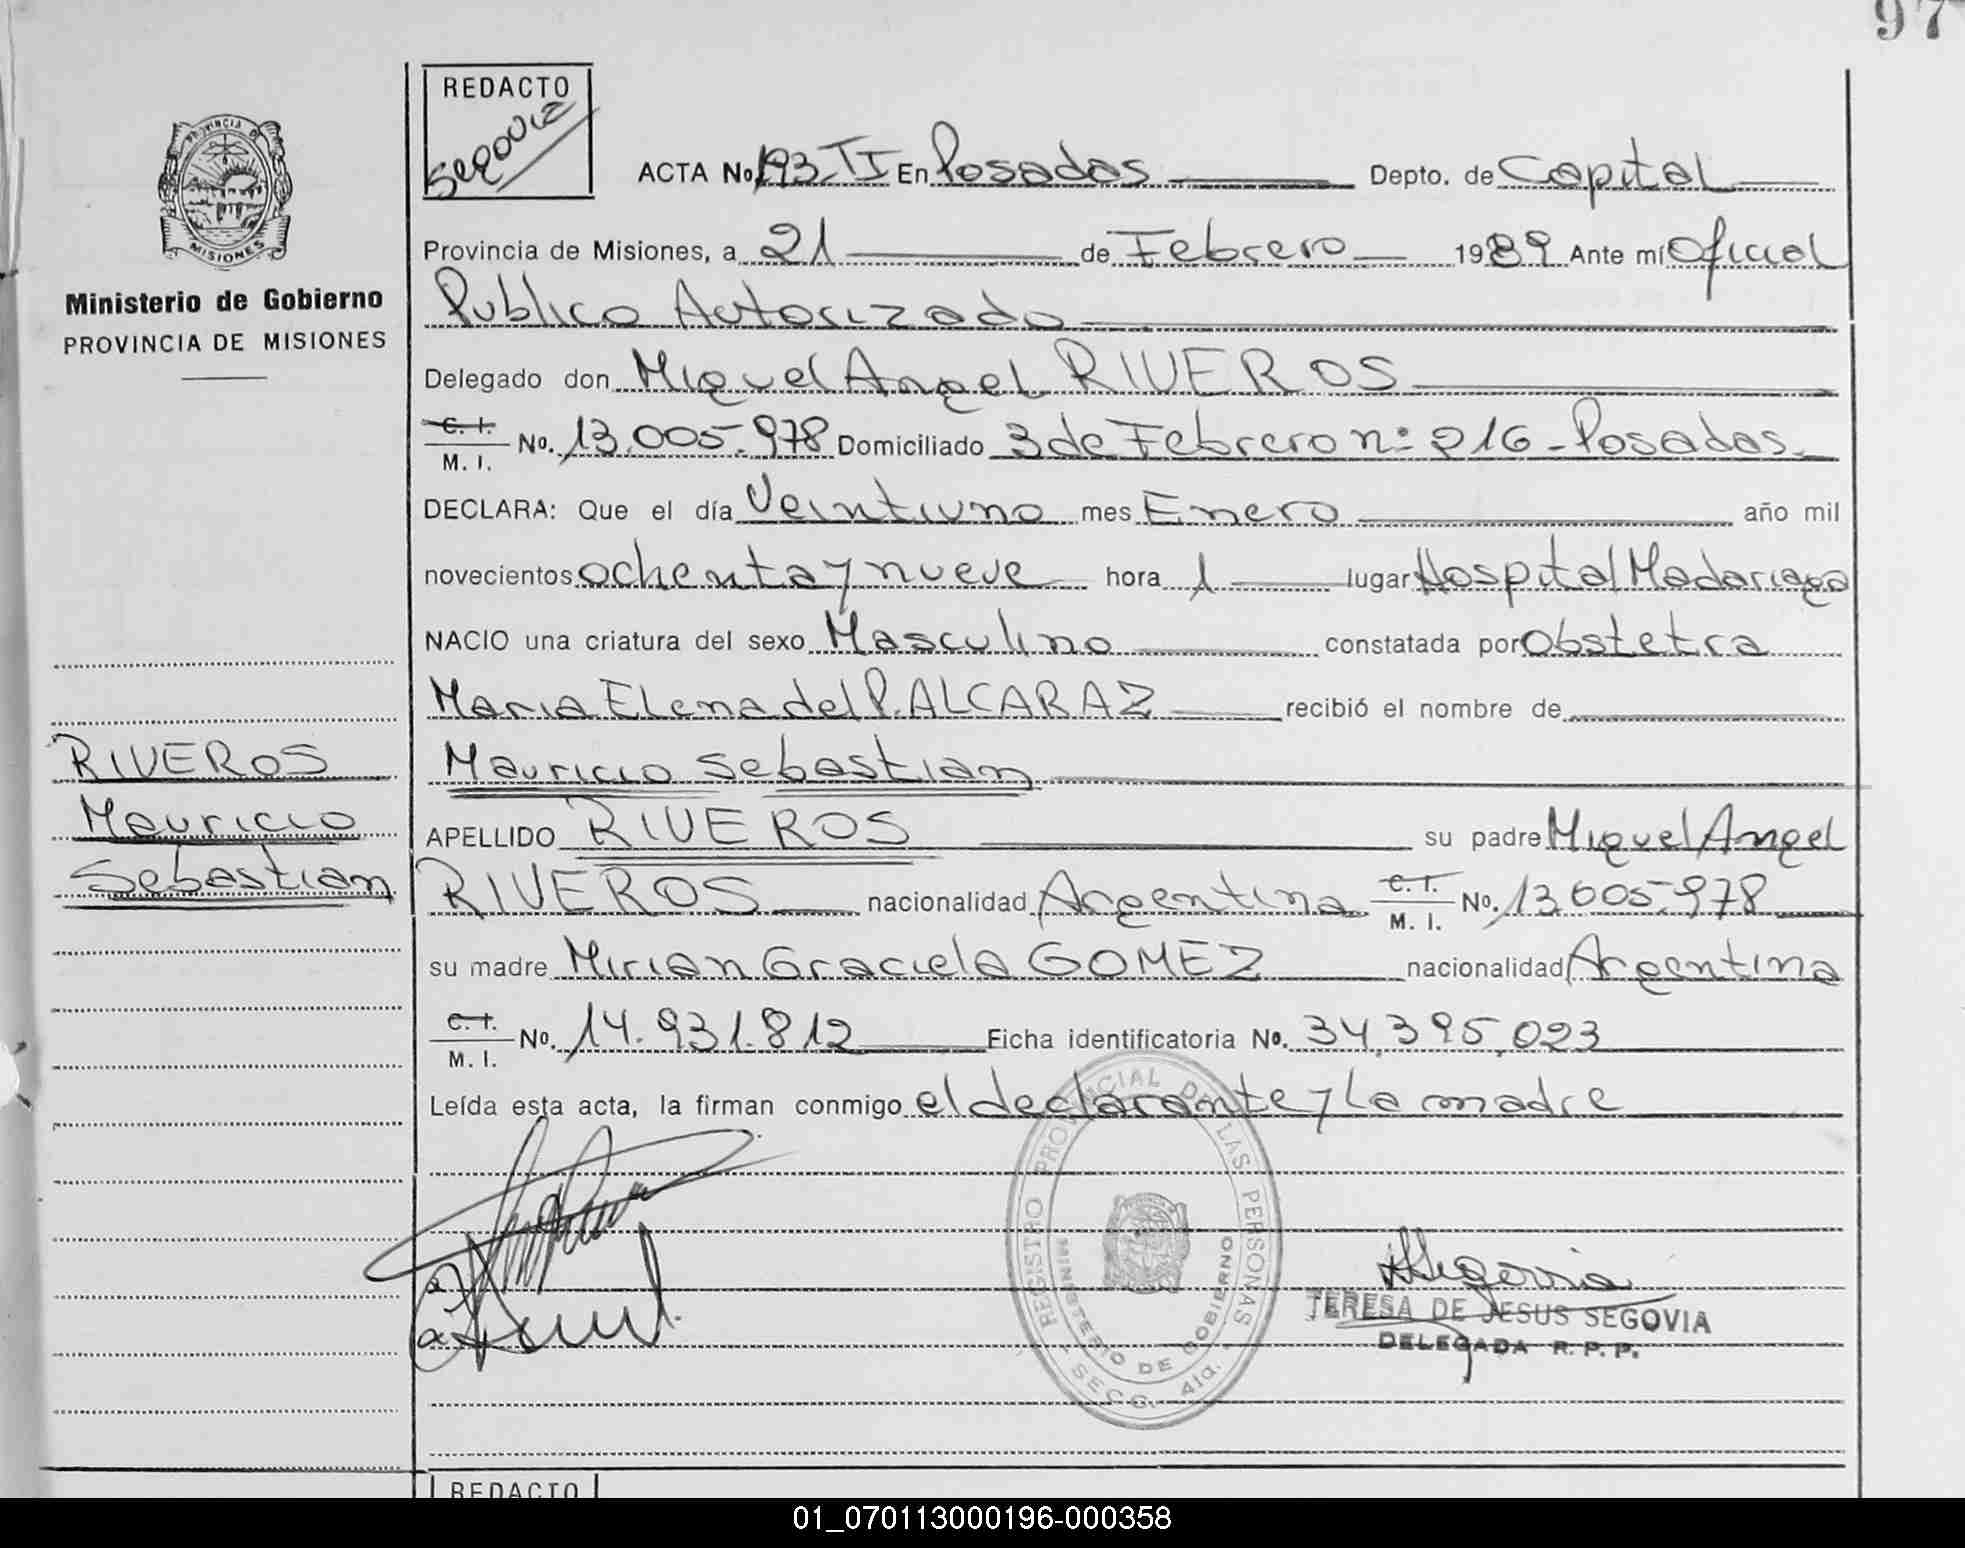 97
REDACTO
Segovia
ACTA No. 193-II En Posadas Depto. de Capital
Provincia de Misiones, a 21 de Febrero 1989 Ante mí Oficial
Publico Autorizado
Delegado don Miguel Angel RIVEROS
C. I.
M. I. No. 13.005.978 Domiciliado 3 de Febrero nº 216 - Posadas
DECLARA: Que el día Veintiuno mes Enero año mil
novecientos ochenta y nueve hora 1 lugar Hospital Madariaga
NACIO una criatura del sexo Masculino constatada por Obstetra
Maria Elena del P. ALCARAZ recibió el nombre de
Mauricio Sebastian
APELLIDO RIVEROS su padre Miguel Angel
RIVEROS nacionalidad Argentina C. I.
M. I. No. 13.005.978
su madre Mirian Graciela GOMEZ nacionalidad Argentina
C. I.
M. I. No. 14.931.812 Ficha identificatoria No. 34.395.023
Leída esta acta, la firman conmigo el declarante y La madre
PROVINCIA DE
MISIONES
Ministerio de Gobierno
PROVINCIA DE MISIONES
RIVEROS
Mauricio
Sebastian
REGISTRO PROVINCIAL DE LAS PERSONAS
MINISTERIO DE GOBIERNO
SECC. 4ta.
Segovia
TERESA DE JESUS SEGOVIA
DELEGADA R. P. P.
REDACTO
01_070113000196-000358